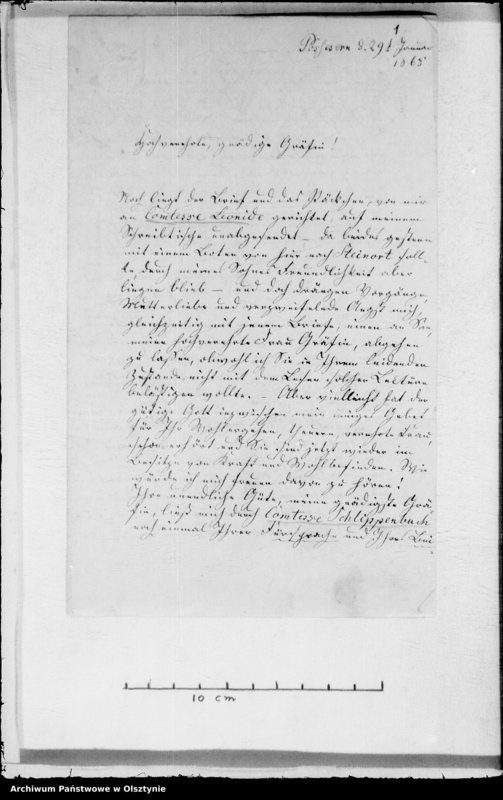 1
d. 29t Januar
1865
Hochverehrte, gnädige Gräfin!
Noch liegt der Brief und das Päckchen, von mir
an Comtesse Leonide gerichtet, auf meinem
Schreibtische unabgesendet – da beides gestern
mit einem Boten von hier nach Steinort soll-
te, durch meines Sohnes Freundlichkeit aber
liegen blieb – und doch drängen Vorgänge,
Mutterliebe und verzweifelnde Angst mich,
gleichzeitig mit jenem Briefe, einen an Sie,
meine hochverehrte Frau Gräfin, abgehen
zu lassen, obwohl ich Sie in Ihrem leidenden
Zustande nicht mit dem Lesen solcher Lectüre
belästigen wollte. – Aber vielleicht hat der
gütige Gott inzwischen mein inniges Gebet
für Ihr Wohlergehen, theuere, verehrte Frau,
schon erhört und Sie sind jetzt wieder im
Besitze von Kraft und Wohlbefinden. Wie
würde ich mich freuen davon zu hören!
Ihre unendliche Güte, meine gnädigste Grä-
fin, ließ mich durch Comtesse Schlippenbach
noch einmal Ihrer Fürsprache und Ihres
10 cm
Archiwum Państwowe w Olsztynie